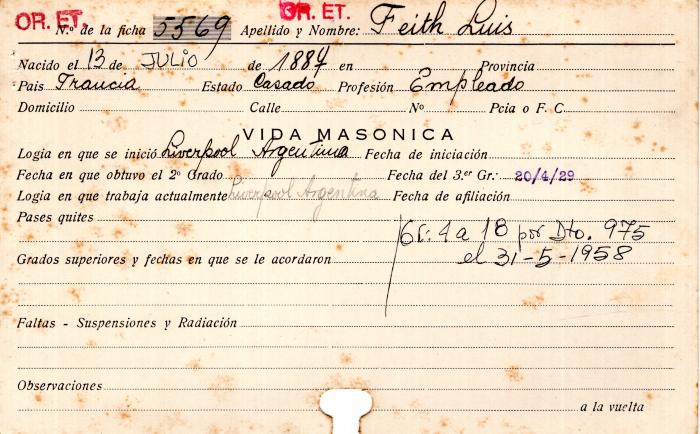 OR. ET. OR. ET.
N.º de la ficha 5569 Apellido y Nombre: Feith Luis
Nacido el 13 de JULIO de 1884 en Provincia
Pais Francia Estado Casado Profesión Empleado
Domicilio Calle Nº Pcia o F. C.
VIDA MASONICA
Logia en que se inició Liverpool Argentina Fecha de iniciación
Fecha en que obtuvo el 2º Grado Fecha del 3.er Gr.: 20/4/29
Logia en que trabaja actualmente Liverpool Argentina Fecha de afiliación
Pases quites
Gr: 4 a 18 por Dto. 975
Grados superiores y fechas en que se le acordaron el 31-5-1958
Faltas - Suspensiones y Radiación
Observaciones
a la vuelta